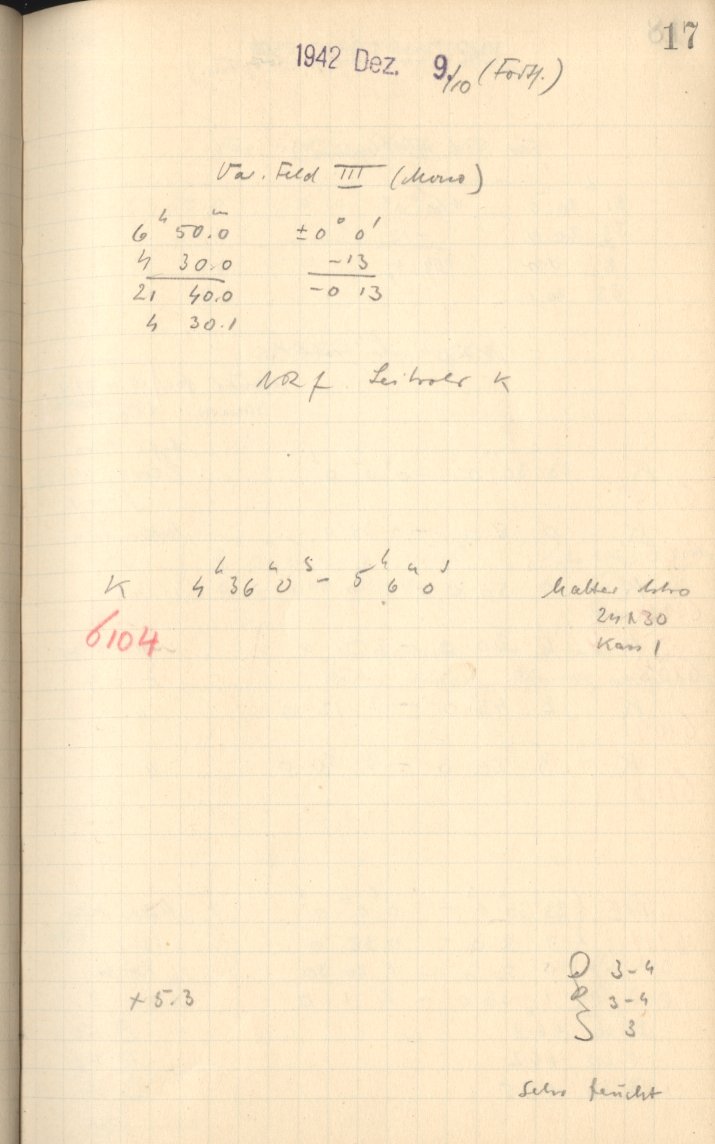 17
1942 Dez. 9./10 (Forts.)
Var. Feld III (Mono)
6ʰ 50.0ᵐ ±0° 0'
4 30.0 -13
21 40.0 -0 13
4 30.1
NRf Leitrohr K
K 4ʰ 36ᵐ 0ˢ - 5ʰ 6ᵐ 0ˢ
6104
24 x 30
Kass 1
+5.3
3-4
3-4
3
Sehr feucht